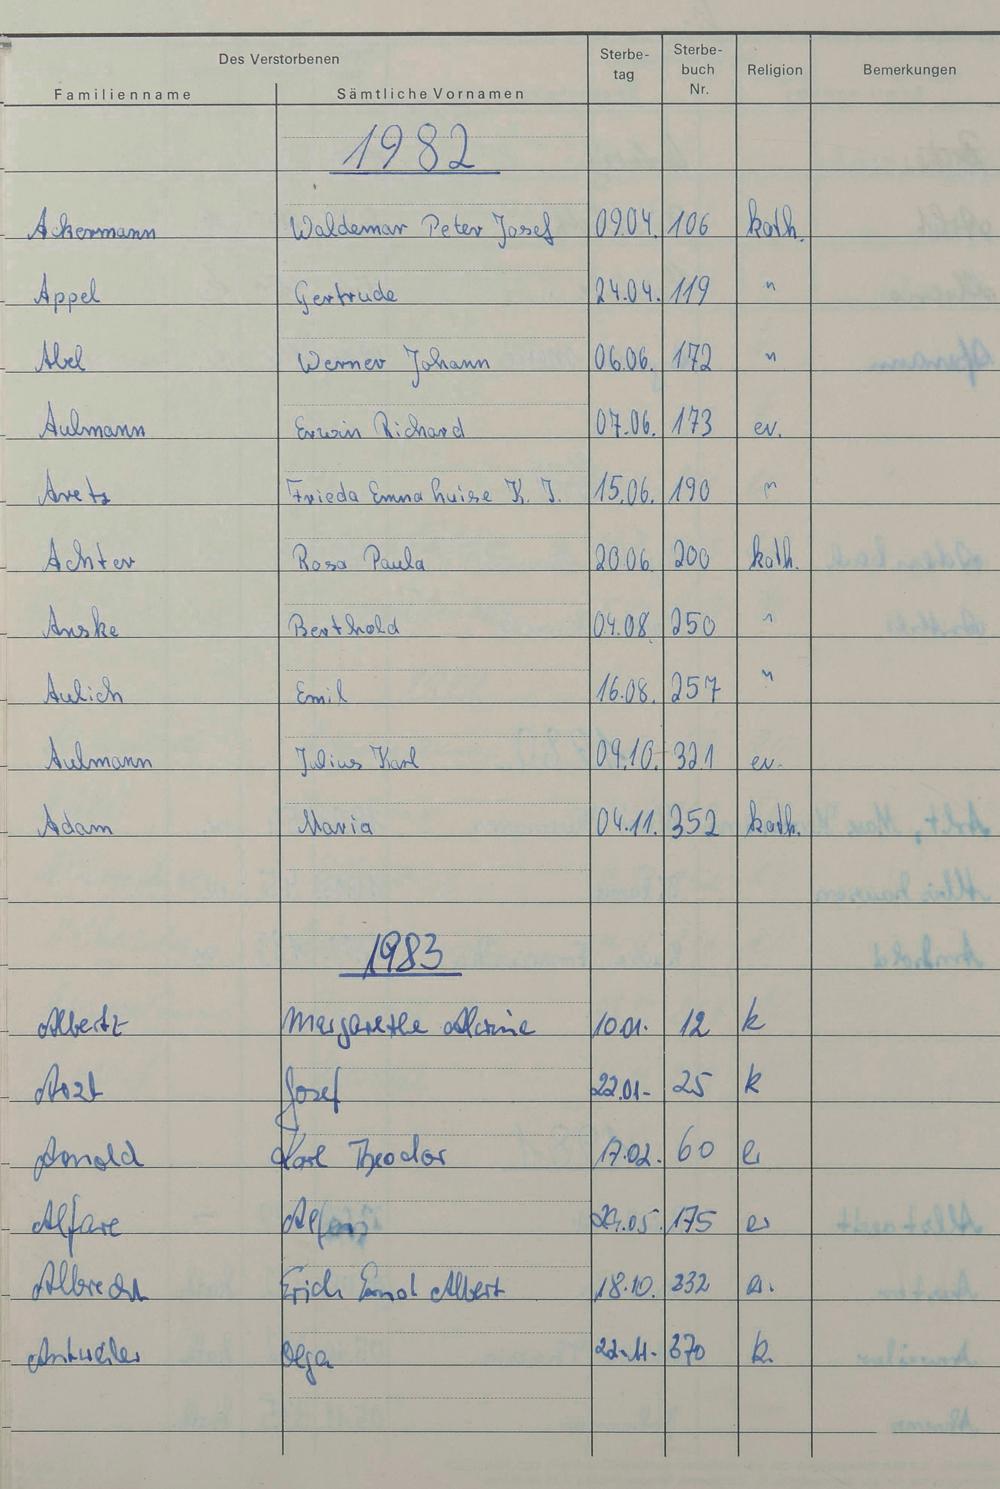 Des Verstorbenen Sterbe- Sterbe- Religion Bemerkungen
tag buch
Familienname Sämtliche Vornamen Nr.
1982
Ackermann Waldemar Peter Josef 09.04. 106 kath.
Appel Gertrude 24.04. 119 "
Abel Werner Johann 06.06. 172 "
Aulmann Erwin Richard 07.06. 173 ev.
Aretz Frieda Emma Luise K. J. 15.06. 190 "
Achter Rosa Paula 20.06. 200 kath.
Anske Berthold 04.08. 250 "
Aulich Emil 16.08. 257 "
Aulmann Julius Karl 09.10. 321 ev.
Adam Maria 04.11. 352 kath.
1983
Albertz Margarethe 10.01. 12 k
Arzt Josef 22.01- 25 k
Arnold Karl Theodor 17.02. 60 e
Alfare 175 ev
Albrecht Erich Ernst Albert 18.10. 332
Antweiler Olga 22.11. 370 k.